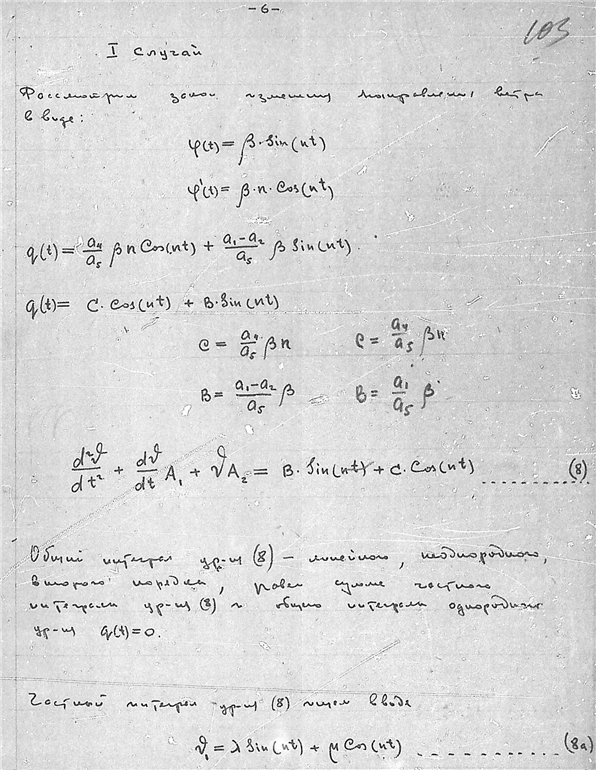 -6-
103
I Случай
Рассмотрим закон изменения направления ветра
в виде:
φ(t) = β·Sin(nt)
φ'(t) = β·n·Cos(nt)
q(t) = a₄/a₅ βn Cos(nt) + (a₁-a₂)/a₅ β Sin(nt).
q(t) = C·Cos(nt) + B·Sin(nt)
C = a₄/a₅ βn C = a₄/a₅ βn
B = (a₁-a₂)/a₅ β B = a₁/a₅ β
d²ϑ/dt² + dϑ/dt A₁ + ϑA₂ = B·Sin(nt) + C·Cos(nt) ......... (8)
Общий интеграл ур-ия (8) – линейного, неоднородного,
второго порядка, равен сумме частного
интеграла ур-ия (8) и общего интеграла однородного
ур-ия q(t)=0.
Частный интеграл ур-ия (8) ищем в виде
ϑ₁ = λ Sin(nt) + μ Cos(nt) ......... (8а)